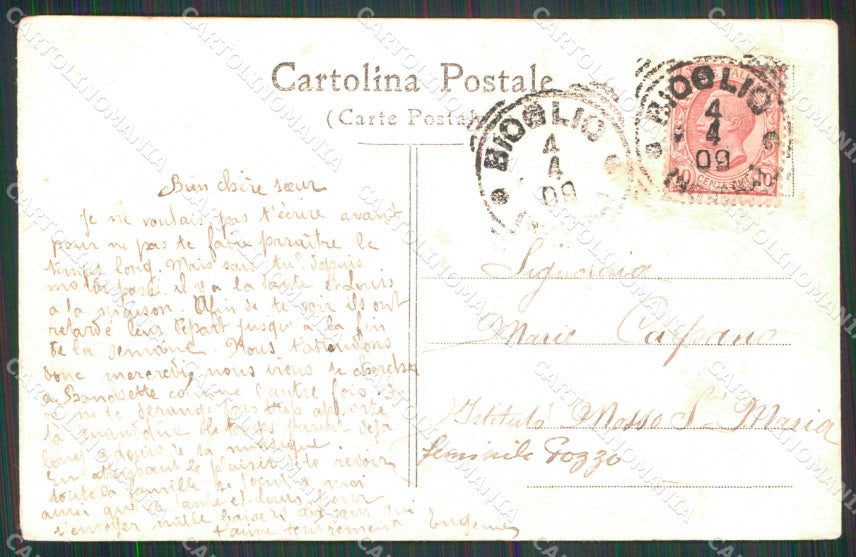 Cartolina Postale
(Carte Postale
BIOGLIO
4
4
09
BIOGLIO
4
4
09
10 CENT 10
Bien chère sœur
Je ne voulais pas t'écrire avant
pour ne pas te faire paraître le
temps long. Mais sais tu depuis
il y a la tante et Louis
a la maison. Afin de te voir ils ont
retardé leur départ jusqu'à la fin
de la semaine. Nous t'attendons
donc mercredi, nous irons te chercher
a comme l'autre fois
si ne te dérange pas trop apporte
la
long de sa musique
En attendant le plaisir de te revoir
toute la famille se joint a moi
ainsi que la tante et Louis pour
t'envoyer mille baisers de qui
t'aime tendrement
Signorina
Marie Carpano
Istituto Mosso S. Maria
femminile Pozzo
CARTOLINOMANIA